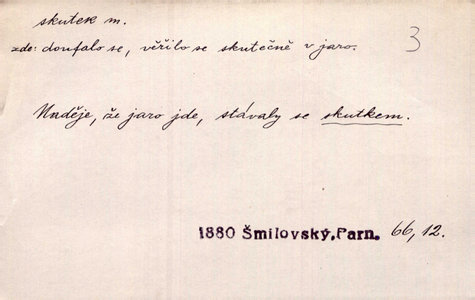 skutek m.
zde: doufalo se, věřilo se skutečně v jaro.
3
Naděje, že jaro jde, stávaly se skutkem.
1880 Šmilovský, Parn. 66, 12.